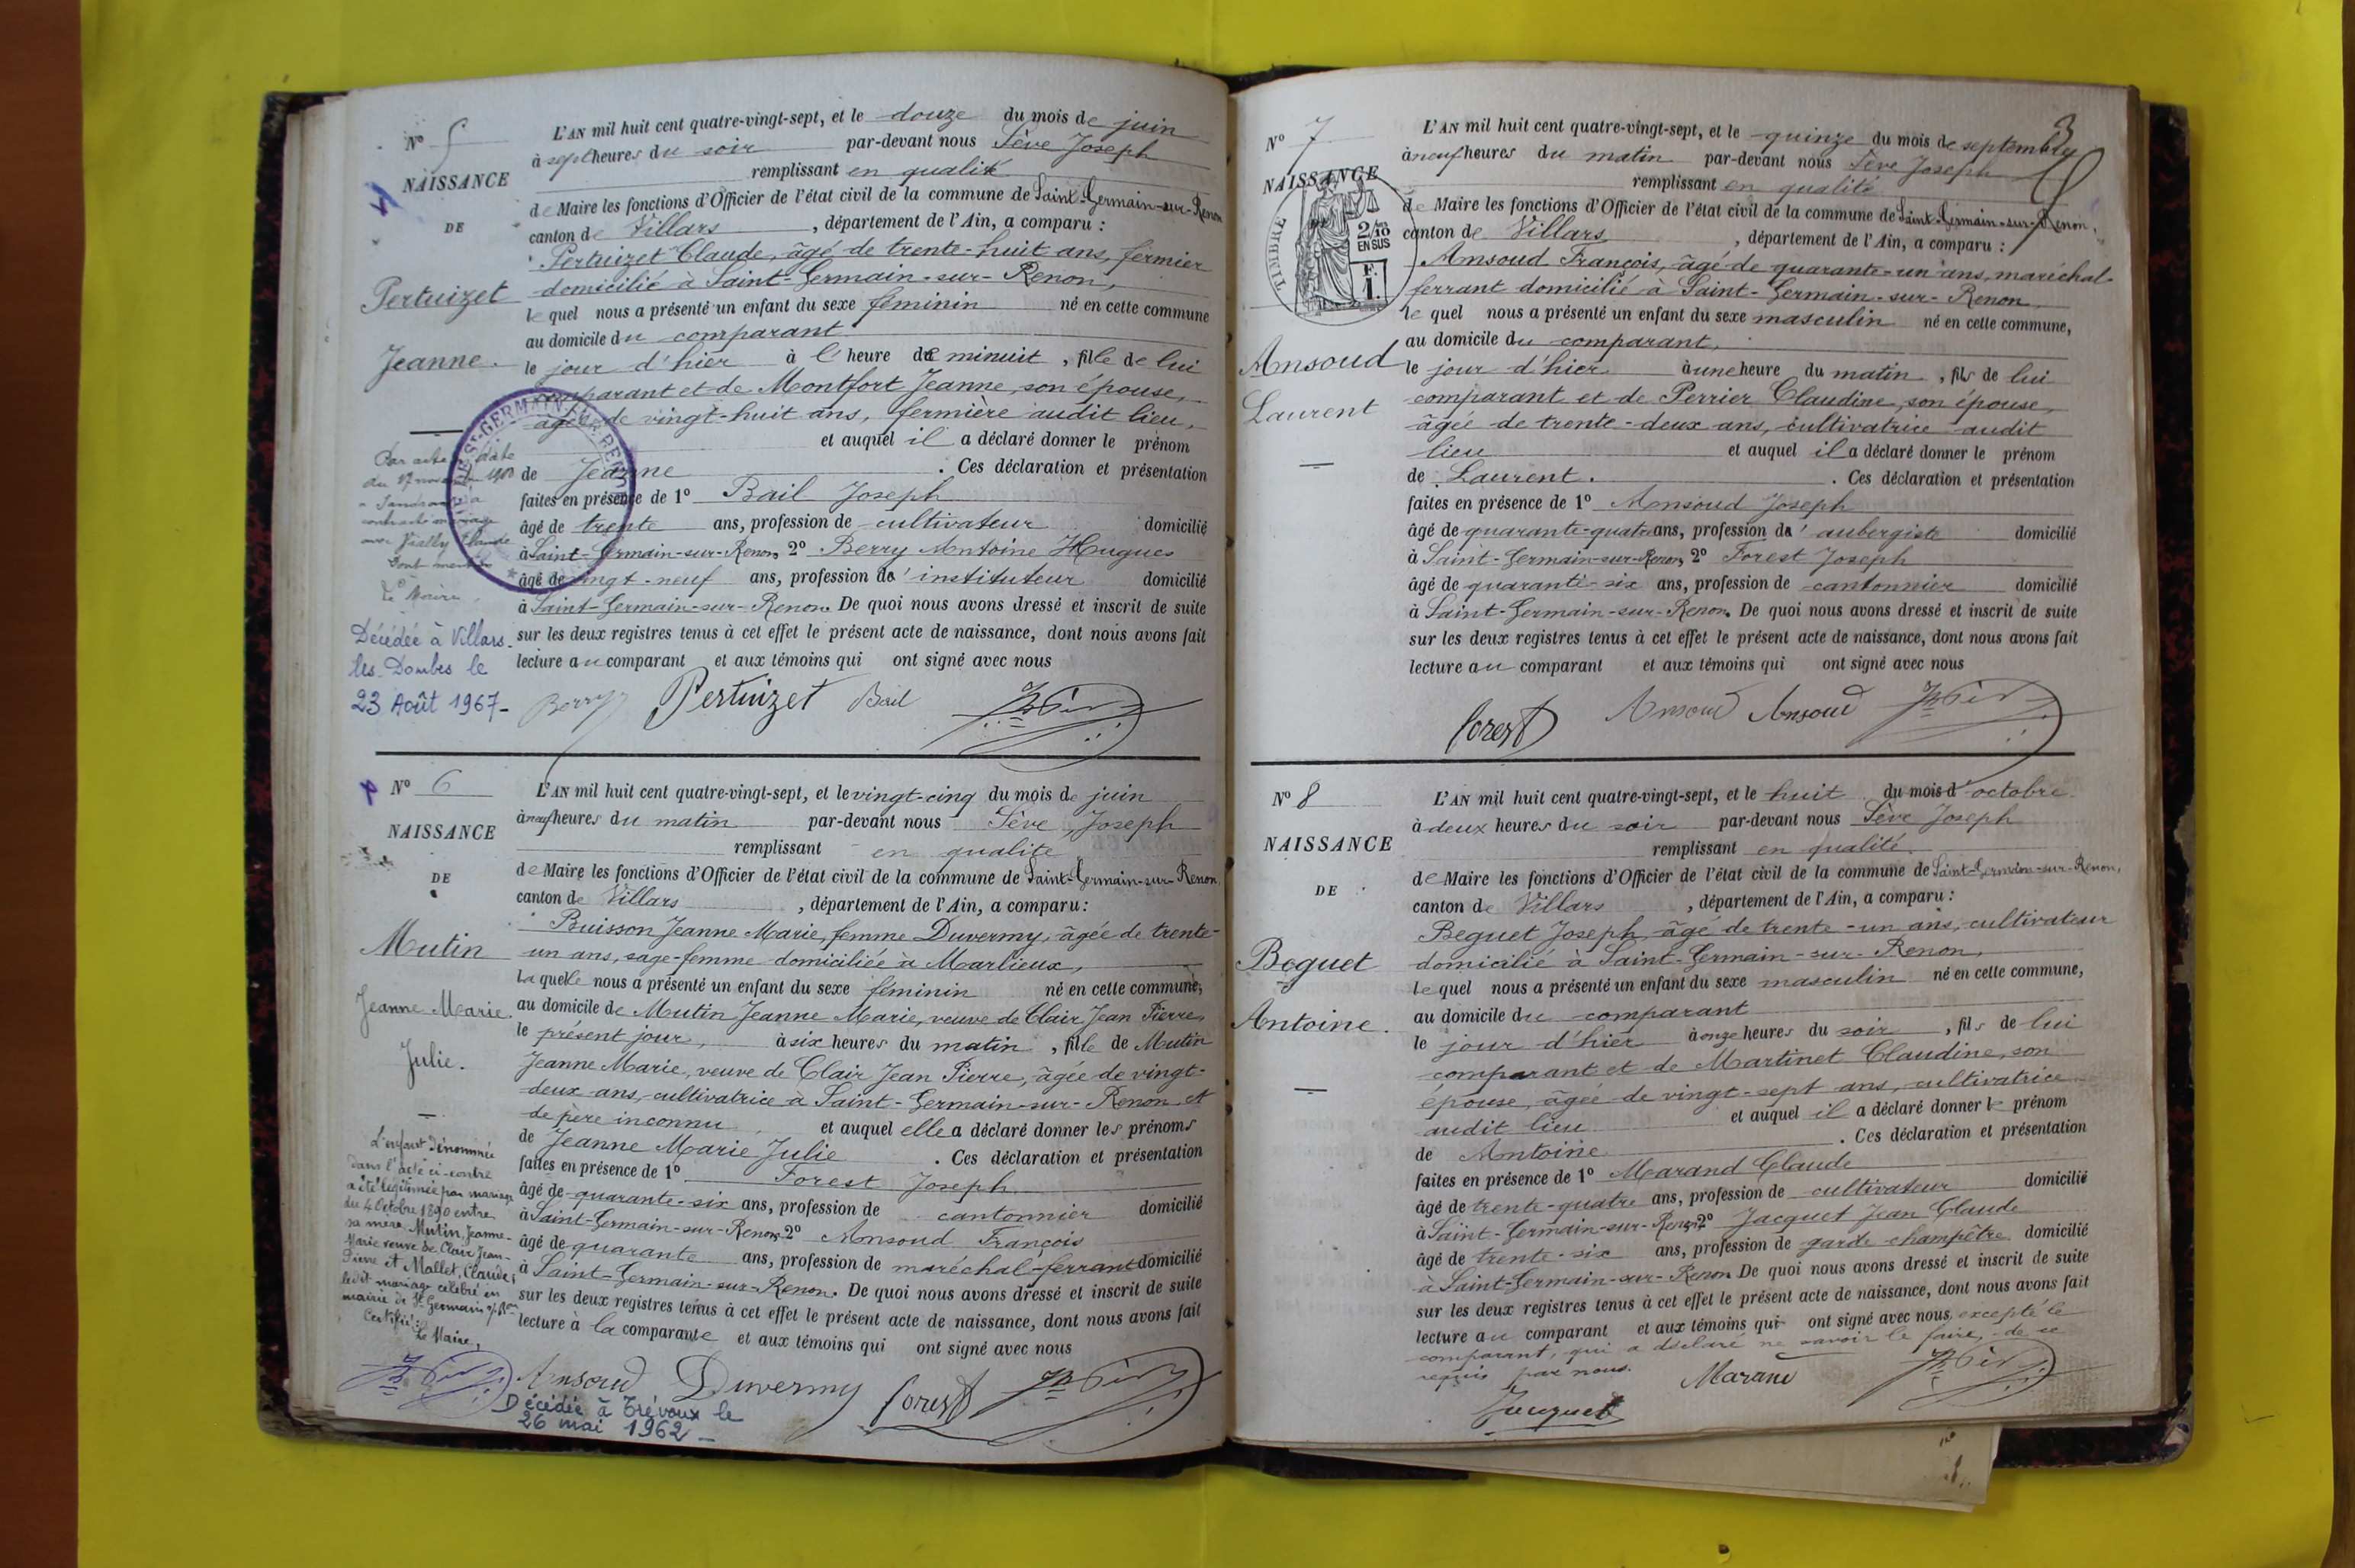 N° 5
NAISSANCE
DE
Pertuizet
Jeanne.
Par acte en date
du 17 novembre
a
contracté mariage
avec Vially Claude
Dont mention
Le Maire
Décédée à Villars-
les-Dombes le
23 Août 1967-
L'AN mil huit cent quatre-vingt-sept, et le douze du mois de juin
à sept heures du soir par-devant nous Sève Joseph
remplissant en qualité
de Maire les fonctions d'Officier de l'état civil de la commune de Saint-Germain-sur-Renon
canton de Villars, département de l'Ain, a comparu :
Pertuizet Claude, âgé de trente-huit ans, fermier
domicilié à Saint-Germain-sur-Renon,
lequel nous a présenté un enfant du sexe féminin né en cette commune
au domicile du comparant
le jour d'hier à l'heure de minuit, fille de lui
comparant et de Montfort Jeanne, son épouse,
âgée de vingt-huit ans, fermière audit lieu,
et auquel il a déclaré donner le prénom
de Jeanne. Ces déclaration et présentation
faites en présence de 1° Bail Joseph
âgé de trente ans, profession de cultivateur domicilié
à Saint-Germain-sur-Renon, 2° Berry Antoine Hugues
âgé de vingt-neuf ans, profession d'instituteur domicilié
à Saint-Germain-sur-Renon. De quoi nous avons dressé et inscrit de suite
sur les deux registres tenus à cet effet le présent acte de naissance, dont nous avons fait
lecture au comparant et aux témoins qui ont signé avec nous
Berry Pertuizet Bail
N° 6
NAISSANCE
DE
Mutin
Jeanne Marie
Julie.
L'enfant dénommée
dans l'acte ci-contre
a été légitimée par mariage
du 4 Octobre 1890 entre
sa mère Mutin Jeanne-
Marie veuve de Clair Jean-
Pierre et Mallet, Claude,
ledit mariage célébré en
mairie de St Germain s/ Ron
Certifié :
Le Maire,
L'AN mil huit cent quatre-vingt-sept, et le vingt-cinq du mois de juin
à neuf heures du matin par-devant nous Sève Joseph
remplissant en qualité
de Maire les fonctions d'Officier de l'état civil de la commune de Saint-Germain-sur-Renon,
canton de Villars, département de l'Ain, a comparu :
Buisson Jeanne Marie, femme Duvermy, âgée de trente-
un ans, sage-femme domiciliée à Marlieux,
laquelle nous a présenté un enfant du sexe féminin né en cette commune,
au domicile de Mutin Jeanne Marie, veuve de Clair Jean Pierre,
le présent jour, à six heures du matin, fille de Mutin
Jeanne Marie, veuve de Clair Jean Pierre, âgée de vingt-
deux ans, cultivatrice à Saint-Germain-sur-Renon et
de père inconnu, et auquel elle a déclaré donner les prénoms
de Jeanne Marie Julie. Ces déclaration et présentation
faites en présence de 1° Forest Joseph
âgé de quarante-six ans, profession de cantonnier domicilié
à Saint-Germain-sur-Renon, 2° Ansoud François
âgé de quarante ans, profession de maréchal-ferrant domicilié
à Saint-Germain-sur-Renon. De quoi nous avons dressé et inscrit de suite
sur les deux registres tenus à cet effet le présent acte de naissance, dont nous avons fait
lecture à la comparante et aux témoins qui ont signé avec nous
Ansoud Duvermy Forest
Décédée à Trévoux le
26 mai 1962-
3
N° 7
NAISSANCE
TIMBRE
2/10
EN SUS
F.
1.
Ansoud
Laurent
L'AN mil huit cent quatre-vingt-sept, et le quinze du mois de septembre
à neuf heures du matin par-devant nous Sève Joseph
remplissant en qualité
de Maire les fonctions d'Officier de l'état civil de la commune de Saint-Germain-sur-Renon,
canton de Villars, département de l'Ain, a comparu :
Ansoud François, âgé de quarante-un ans, maréchal-
ferrant domicilié à Saint-Germain-sur-Renon
lequel nous a présenté un enfant du sexe masculin né en cette commune,
au domicile du comparant,
le jour d'hier à une heure du matin, fils de lui
comparant et de Perrier Claudine, son épouse,
âgée de trente-deux ans, cultivatrice audit
lieu et auquel il a déclaré donner le prénom
de Laurent. Ces déclaration et présentation
faites en présence de 1° Ansoud Joseph
âgé de quarante-quatre ans, profession d'aubergiste domicilié
à Saint-Germain-sur-Renon, 2° Forest Joseph
âgé de quarante-six ans, profession de cantonnier domicilié
à Saint-Germain-sur-Renon. De quoi nous avons dressé et inscrit de suite
sur les deux registres tenus à cet effet le présent acte de naissance, dont nous avons fait
lecture au comparant et aux témoins qui ont signé avec nous
Forest Ansoud Ansoud
N° 8
NAISSANCE
DE
Beguet
Antoine.
L'AN mil huit cent quatre-vingt-sept, et le huit du mois d'octobre
à deux heures du soir par-devant nous Sève Joseph
remplissant en qualité
de Maire les fonctions d'Officier de l'état civil de la commune de Saint-Germain-sur-Renon,
canton de Villars, département de l'Ain, a comparu :
Beguet Joseph, âgé de trente-un ans, cultivateur
domicilié à Saint-Germain-sur-Renon,
lequel nous a présenté un enfant du sexe masculin né en cette commune,
au domicile du comparant
le jour d'hier à onze heures du soir, fils de lui
comparant et de Martinet Claudine, son
épouse, âgée de vingt-sept ans, cultivatrice
audit lieu et auquel il a déclaré donner le prénom
de Antoine. Ces déclaration et présentation
faites en présence de 1° Marand Claude
âgé de trente-quatre ans, profession de cultivateur domicilié
à Saint-Germain-sur-Renon, 2° Jacquet Jean Claude
âgé de trente-six ans, profession de garde champêtre domicilié
à Saint-Germain-sur-Renon De quoi nous avons dressé et inscrit de suite
sur les deux registres tenus à cet effet le présent acte de naissance, dont nous avons fait
lecture au comparant et aux témoins qui ont signé avec nous, excepté le
comparant, qui a déclaré ne savoir le faire, de ce
requis par nous.
Marand
Jacquet